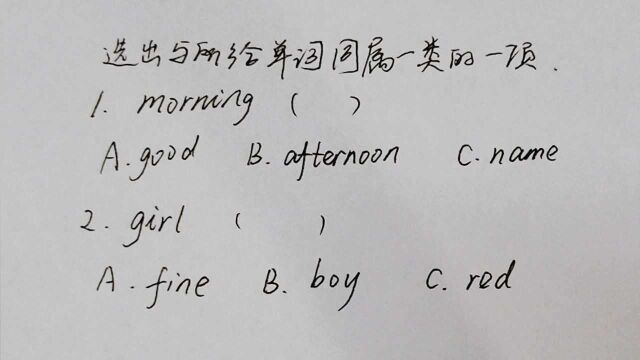 选出与所给单词同属一类的一项.
1. morning ( )
A. good B. afternoon C. name
2. girl ( )
A. fine B. boy C. red